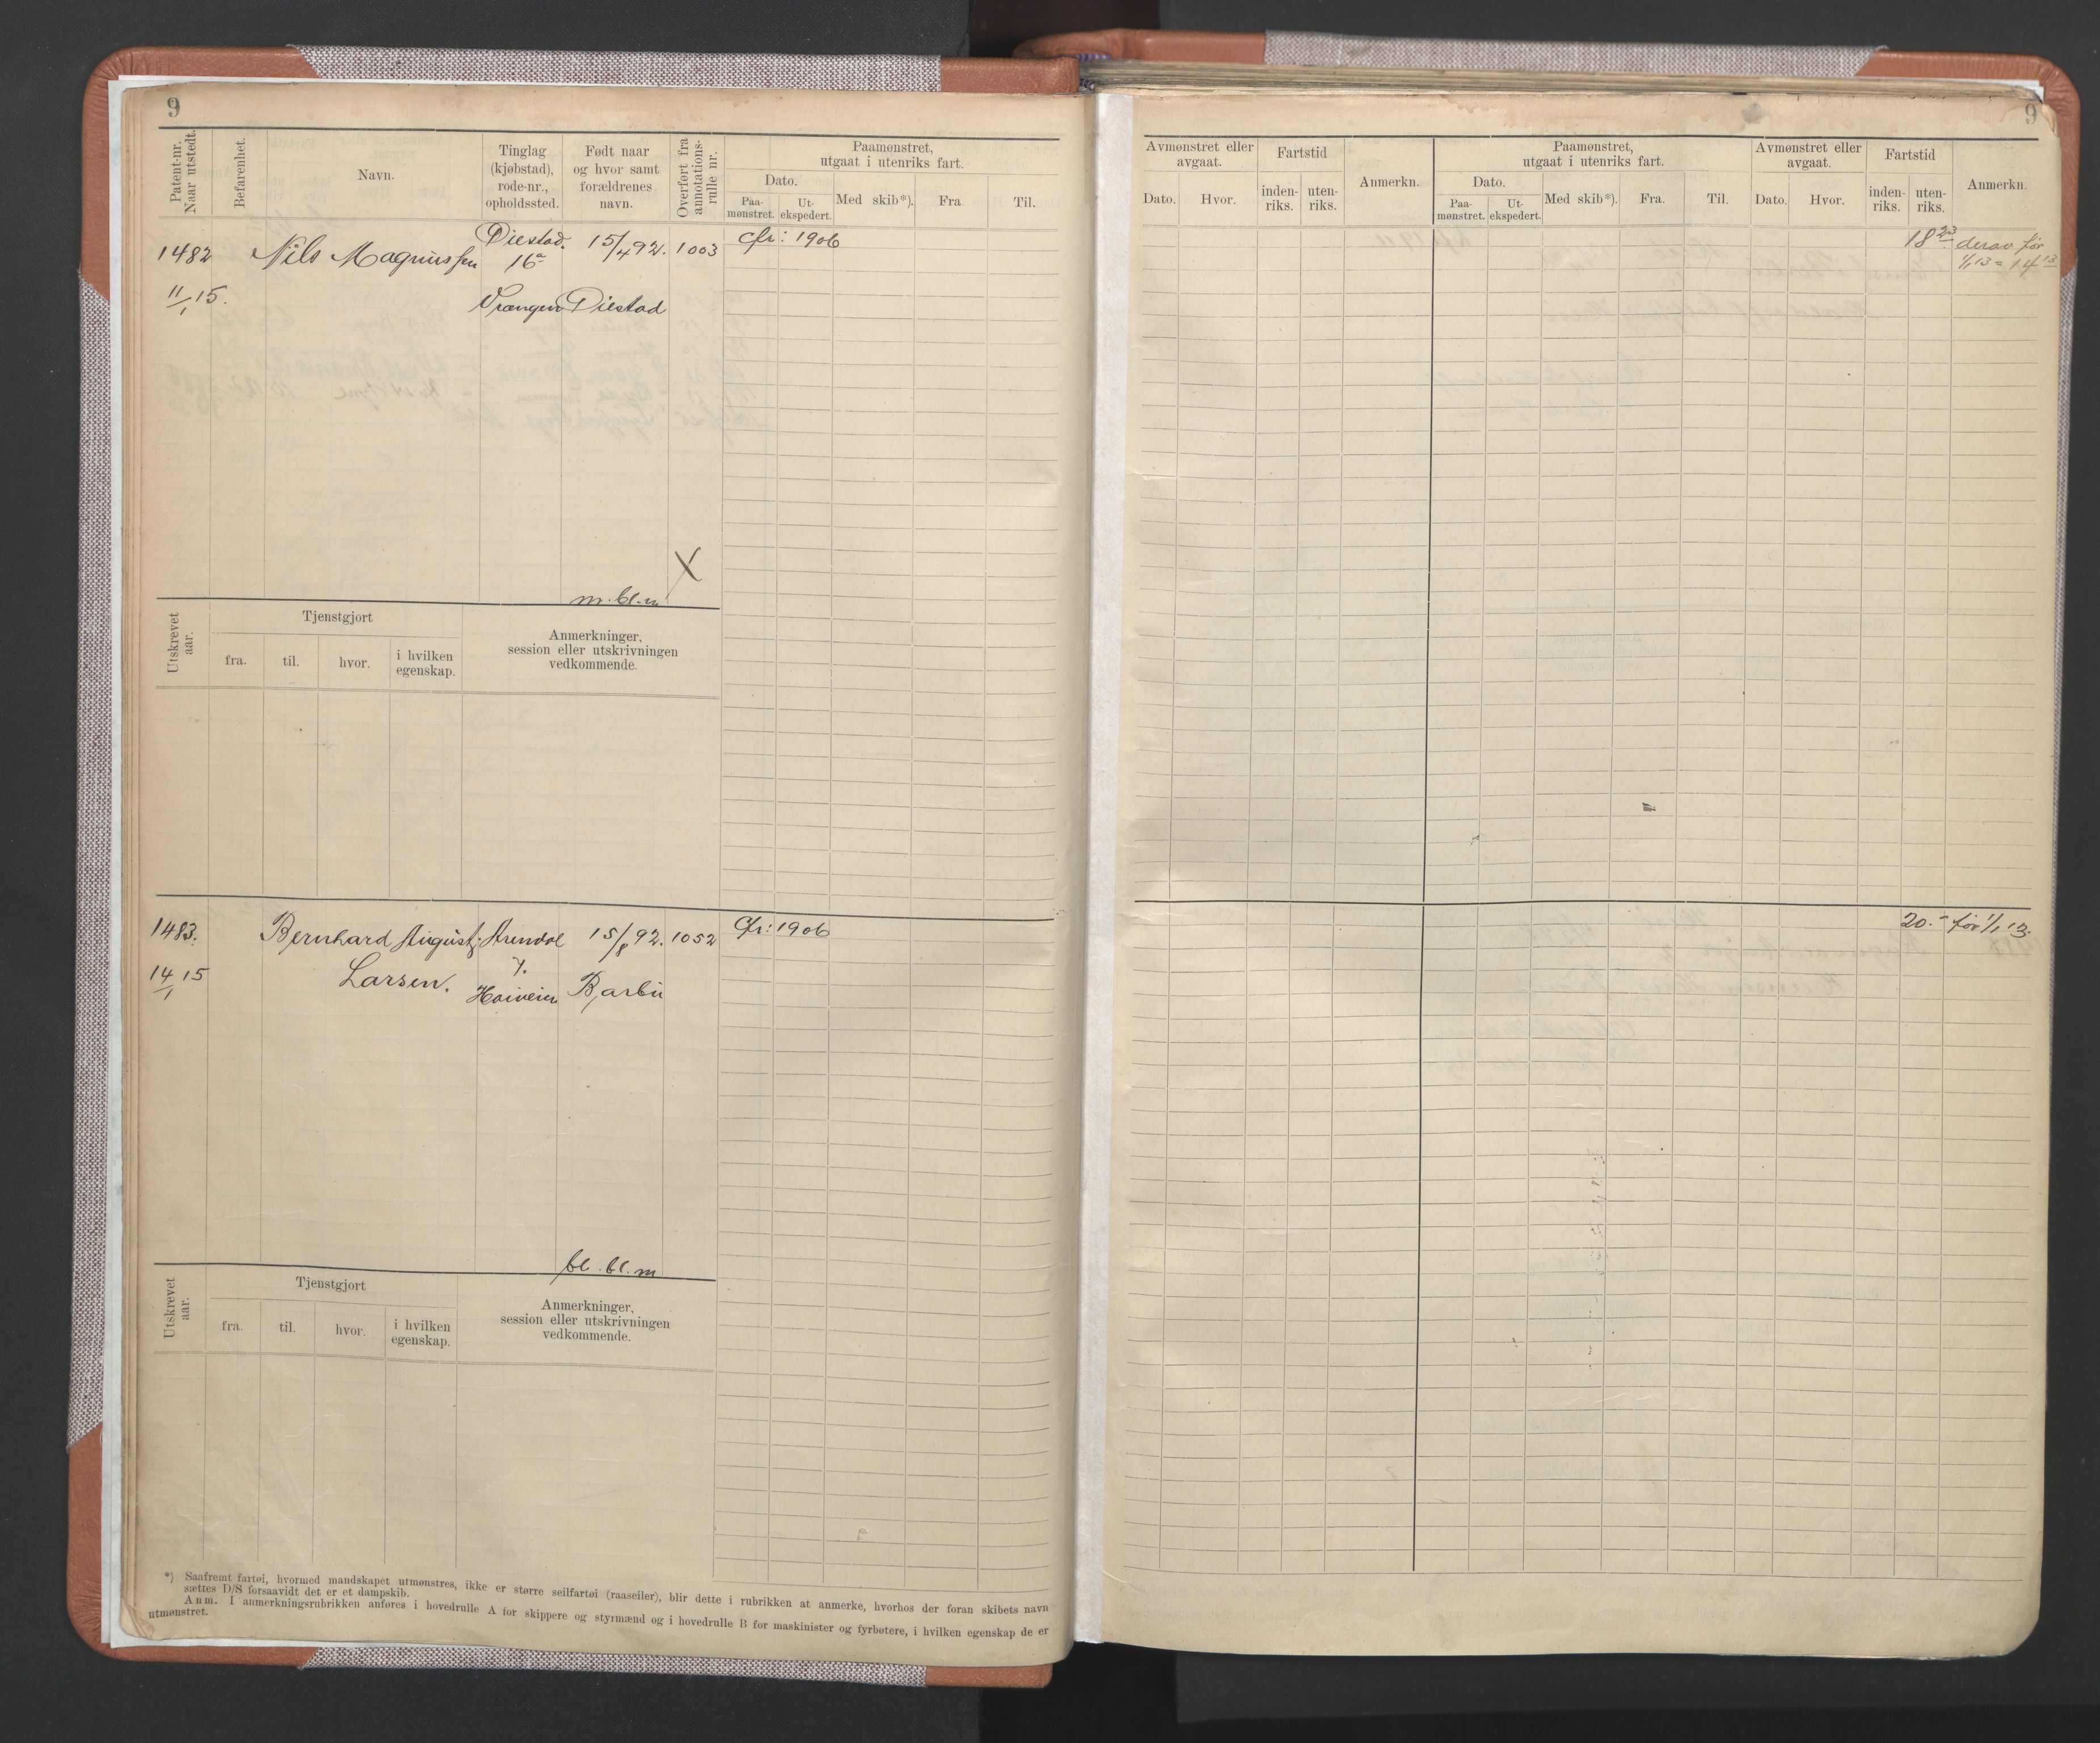 9
Patent-nr. Naar utstedt.
Befarenhet.
Navn.
Tinglag (kjøbstad), rode-nr., opholdssted.
Født naar og hvor samt forældrenes navn.
Overført fra annotations-rulle nr.
Paamønstret, utgaat i utenriks fart.
Dato.
Paa-mønstret.
Ut-ekspedert.
Med skib*).
Fra.
Til.
1482 Nils Magnussen Øiestad. 15/4 92. 1003 Cfr: 1906
16a
11/1 15. Vrangen Øiestad
X
m. bl. m
Utskrevet aar.
Tjenstgjort
fra.
til.
hvor.
i hvilken egenskap.
Anmerkninger, session eller utskrivningen vedkommende.
1483. Bernhard August Arendal 15/8 92. 1052 Cfr: 1906
14/1 15 Larsen. 7. Barbu
bl. bl. m
Utskrevet aar.
Tjenstgjort
fra.
til.
hvor.
i hvilken egenskap.
Anmerkninger, session eller utskrivningen vedkommende.
*) Saafremt fartøi, hvormed mandskapet utmønstres, ikke er større seilfartøi (raaseiler), blir dette i rubrikken at anmerke, hvorhos der foran skibets navn
sættes D/S forsaavidt det er et dampskib.
Anm. I anmerkningsrubrikken anføres i hovedrulle A for skippere og styrmænd og i hovedrulle B for maskinister og fyrbøtere, i hvilken egenskap de er
utmønstret.
9
Avmønstret eller avgaat.
Dato.
Hvor.
Fartstid
inden-riks.
uten-riks.
Anmerkn.
Paamønstret, utgaat i utenriks fart.
Dato.
Paa-mønstret.
Ut-ekspedert.
Med skib*).
Fra.
Til.
Avmønstret eller avgaat.
Dato.
Hvor.
Fartstid
inden-riks.
uten-riks.
Anmerkn.
18 23 derav før
1/1 13 = 14 13
20.- før 1/1 13.